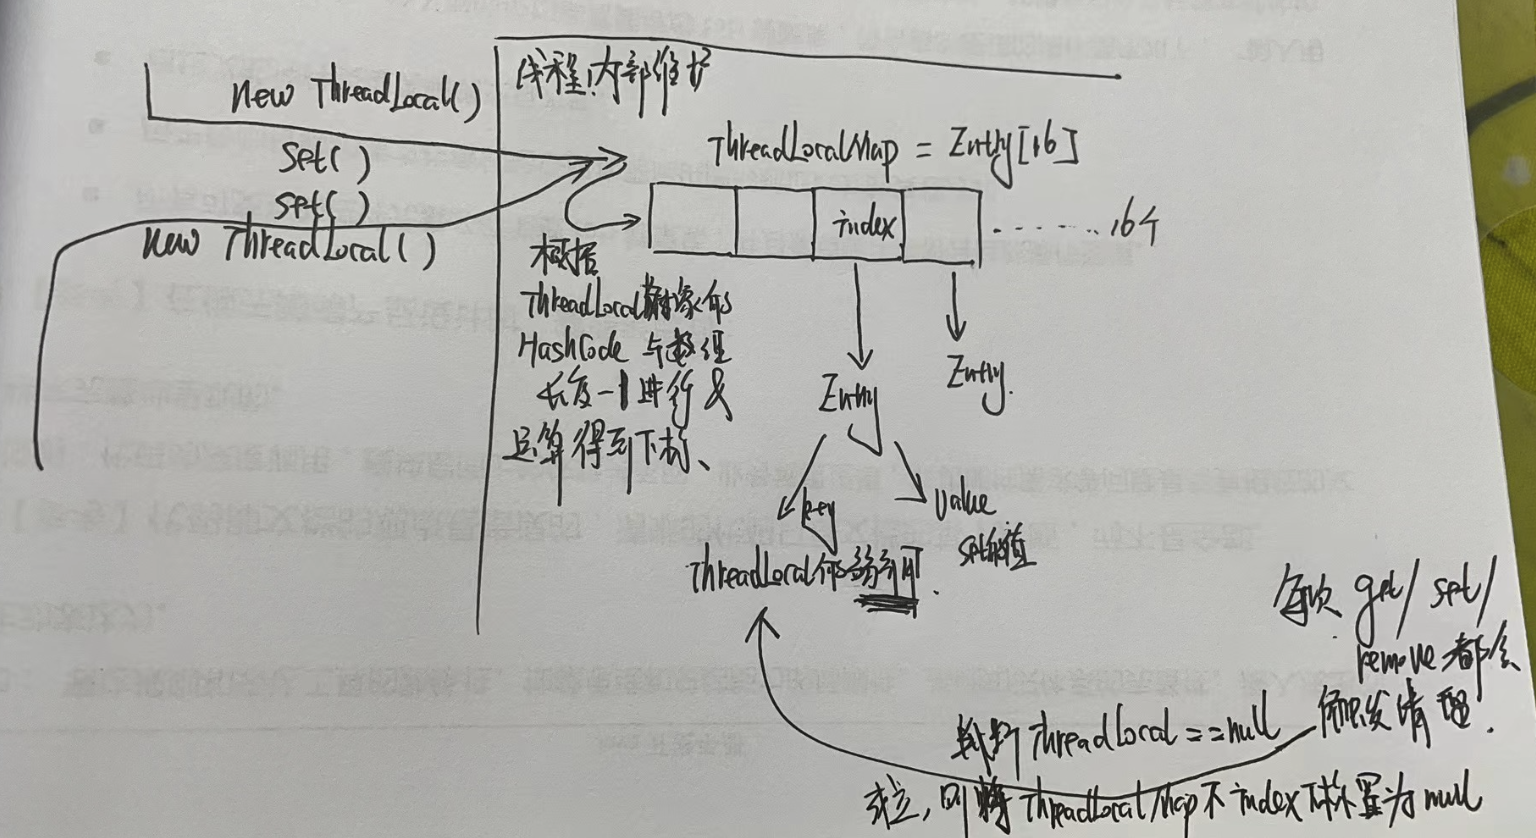 new ThreadLocal()
set()
set()
new ThreadLocal()
线程内部维护
ThreadLocalMap = Entry[16]
index
......16个
根据
ThreadLocal对象的
HashCode 与数组
长度-1进行&
运算得到下标、
Entry
Entry.
key
value
set的值
ThreadLocal的弱引用.
每次 get/ set/
remove都会
触发清理.
判断 ThreadLocal==null
成立, 则将ThreadLocalMap下index下标置为null